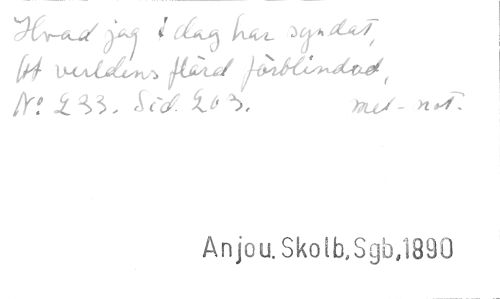 Hvad jag i dag har syndat,
Af verldens flärd förblindad,
No 233. Sid. 203. mel-not.
Anjou. Skolb, Sgb, 1890